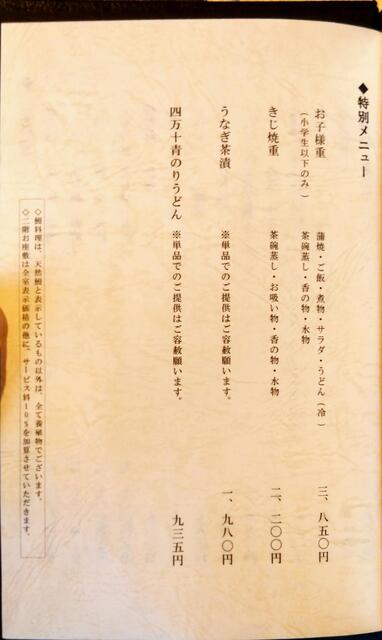 ◆特別メニュー
お子様重
(小学生以下のみ)
蒲焼・ご飯・煮物・サラダ・うどん(冷)
茶碗蒸し・香の物・水物
三、八五〇円
きじ焼重
茶碗蒸し・お吸い物・香の物・水物
二、二〇〇円
うなぎ茶漬
※単品でのご提供はご容赦願います。
一、九八〇円
四万十青のりうどん
※単品でのご提供はご容赦願います。
九三五円
◇鰻料理は、天然鰻と表示しているもの以外は、全て養殖物でございます。
◇二階お座敷は全室表示価格の他に、サービス料10%を加算させていただきます。